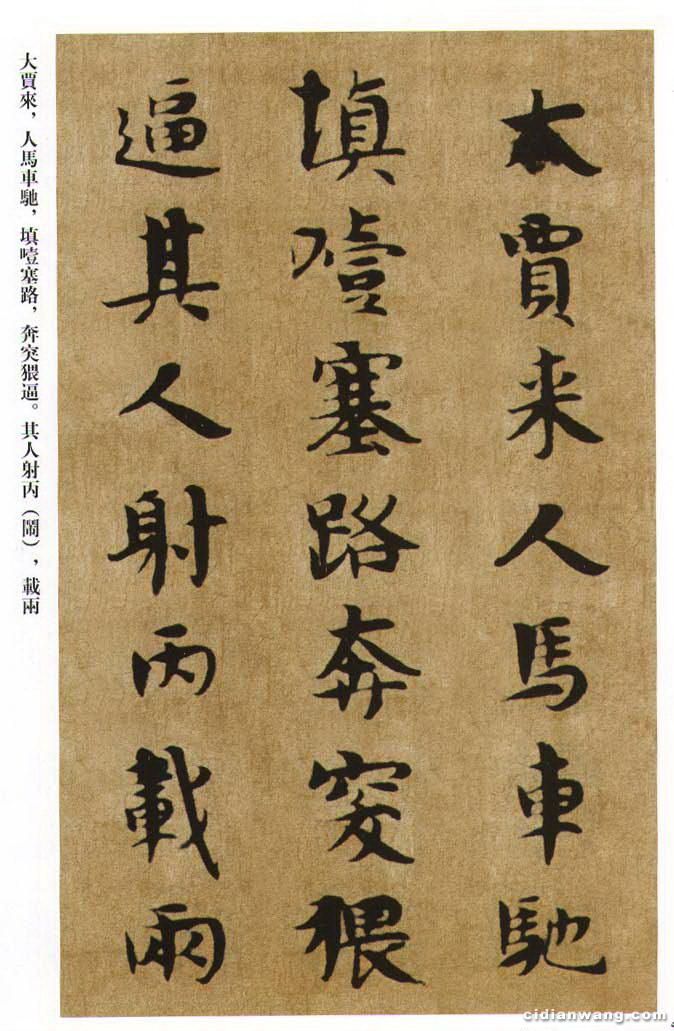 大賈来人馬車馳
填噎塞路奔突猥
逼其人射丙載兩
大賈來，人馬車馳，填噎塞路，奔突猥逼。其人射丙（鬧），載兩
cidianwang.com